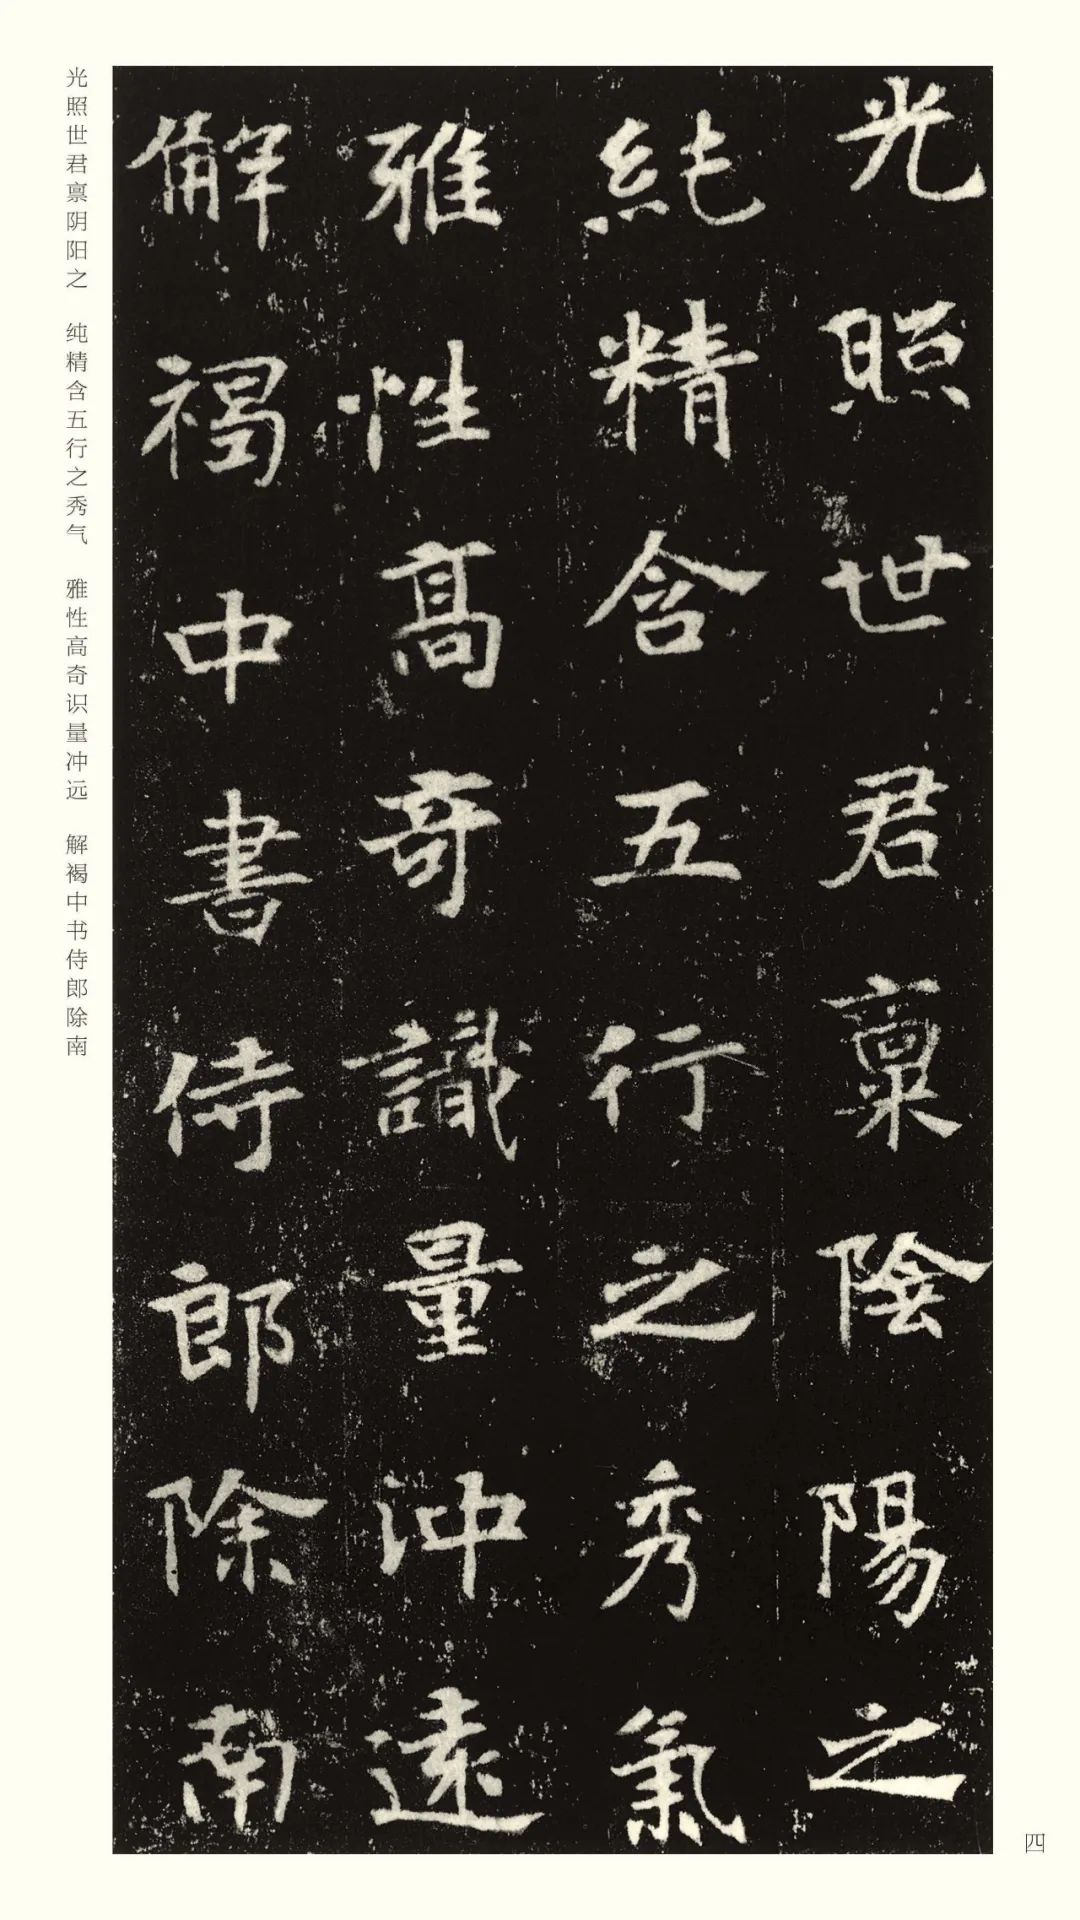 光照世君禀阴阳之　纯精含五行之秀气　雅性高奇识量冲远　解褐中书侍郎除南
光照世君稟陰陽之
純精含五行之秀氣
雅性高奇識量沖遠
解褐中書侍郎除南
四